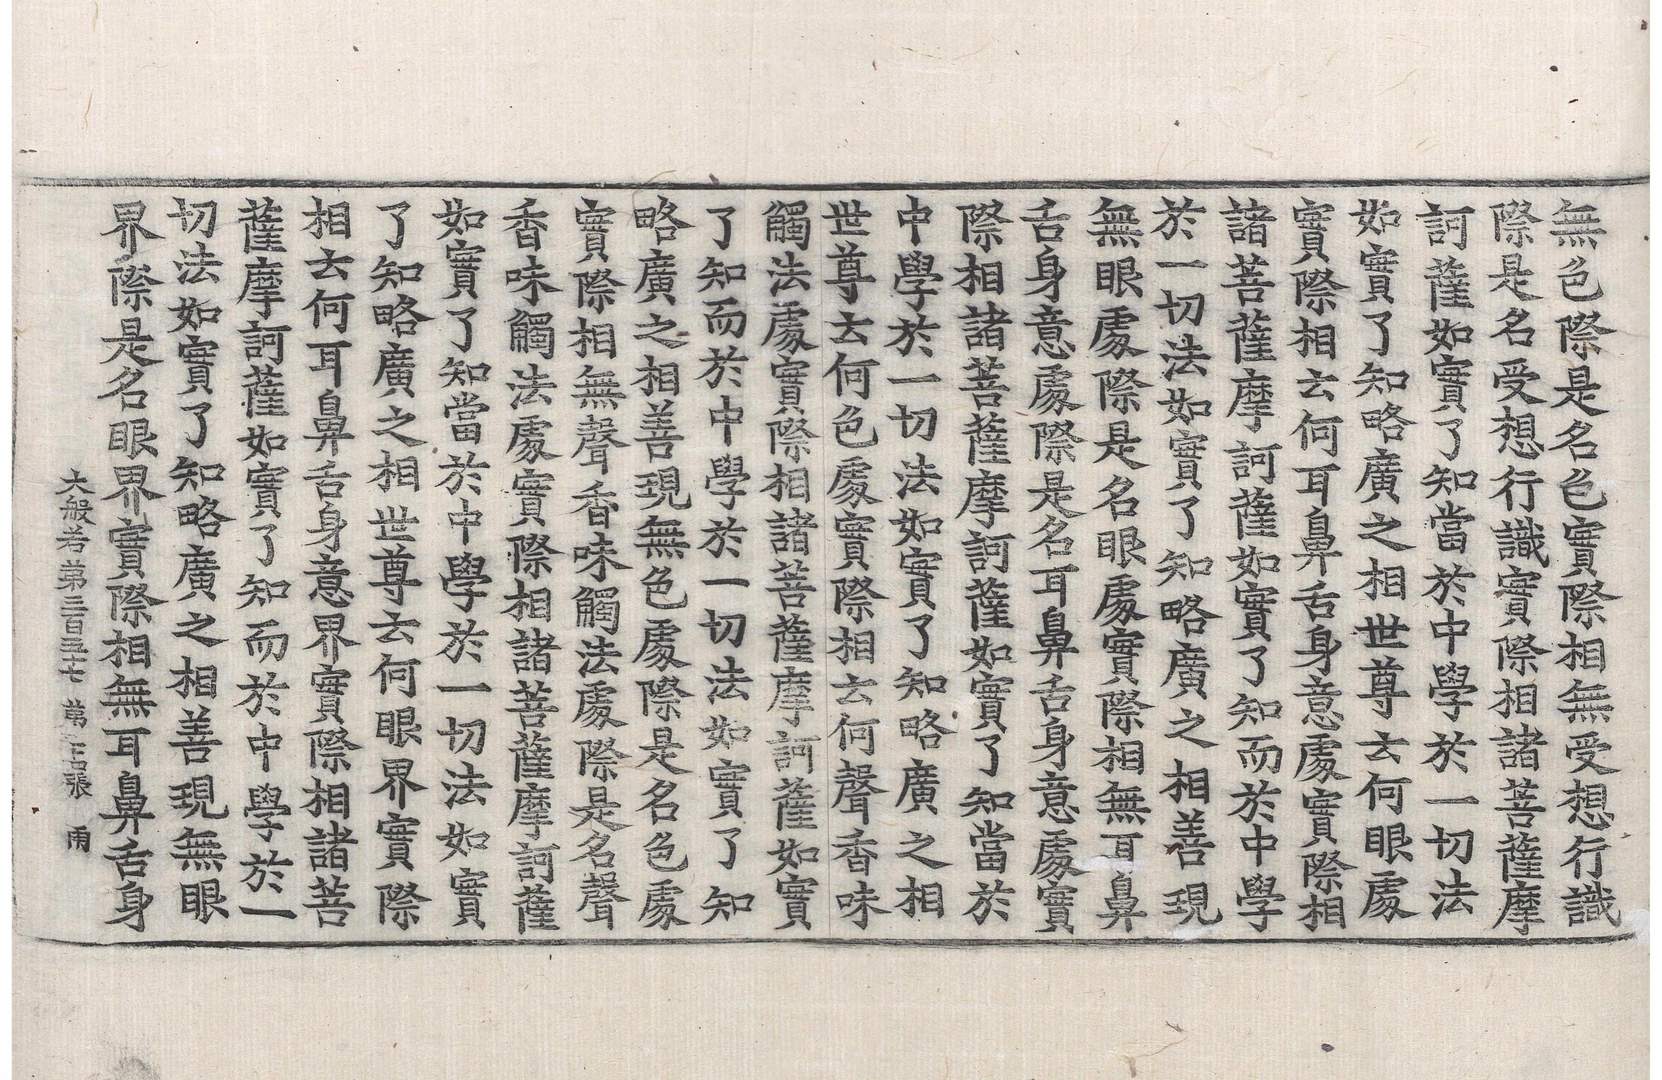 無色際是名色實際相無受想行識
際是名受想行識實際相諸菩薩摩
訶薩如實了知當於中學於一切法
如實了知略廣之相世尊云何眼處
實際相云何耳鼻舌身意處實際相
諸菩薩摩訶薩如實了知而於中學
於一切法如實了知略廣之相善現
無眼處際是名眼處實際相無耳鼻
舌身意處際是名耳鼻舌身意處實
際相諸菩薩摩訶薩如實了知當於
中學於一切法如實了知略廣之相
世尊云何色處實際相云何聲香味
觸法處實際相諸菩薩摩訶薩如實
了知而於中學於一切法如實了知
略廣之相善現無色處際是名色處
實際相無聲香味觸法處際是名聲
香味觸法處實際相諸菩薩摩訶薩
如實了知當於中學於一切法如實
了知略廣之相世尊云何眼界實際
相云何耳鼻舌身意界實際相諸菩
薩摩訶薩如實了知而於中學於一
切法如實了知略廣之相善現無眼
界際是名眼界實際相無耳鼻舌身
大般若第三百五七 第 張 雨